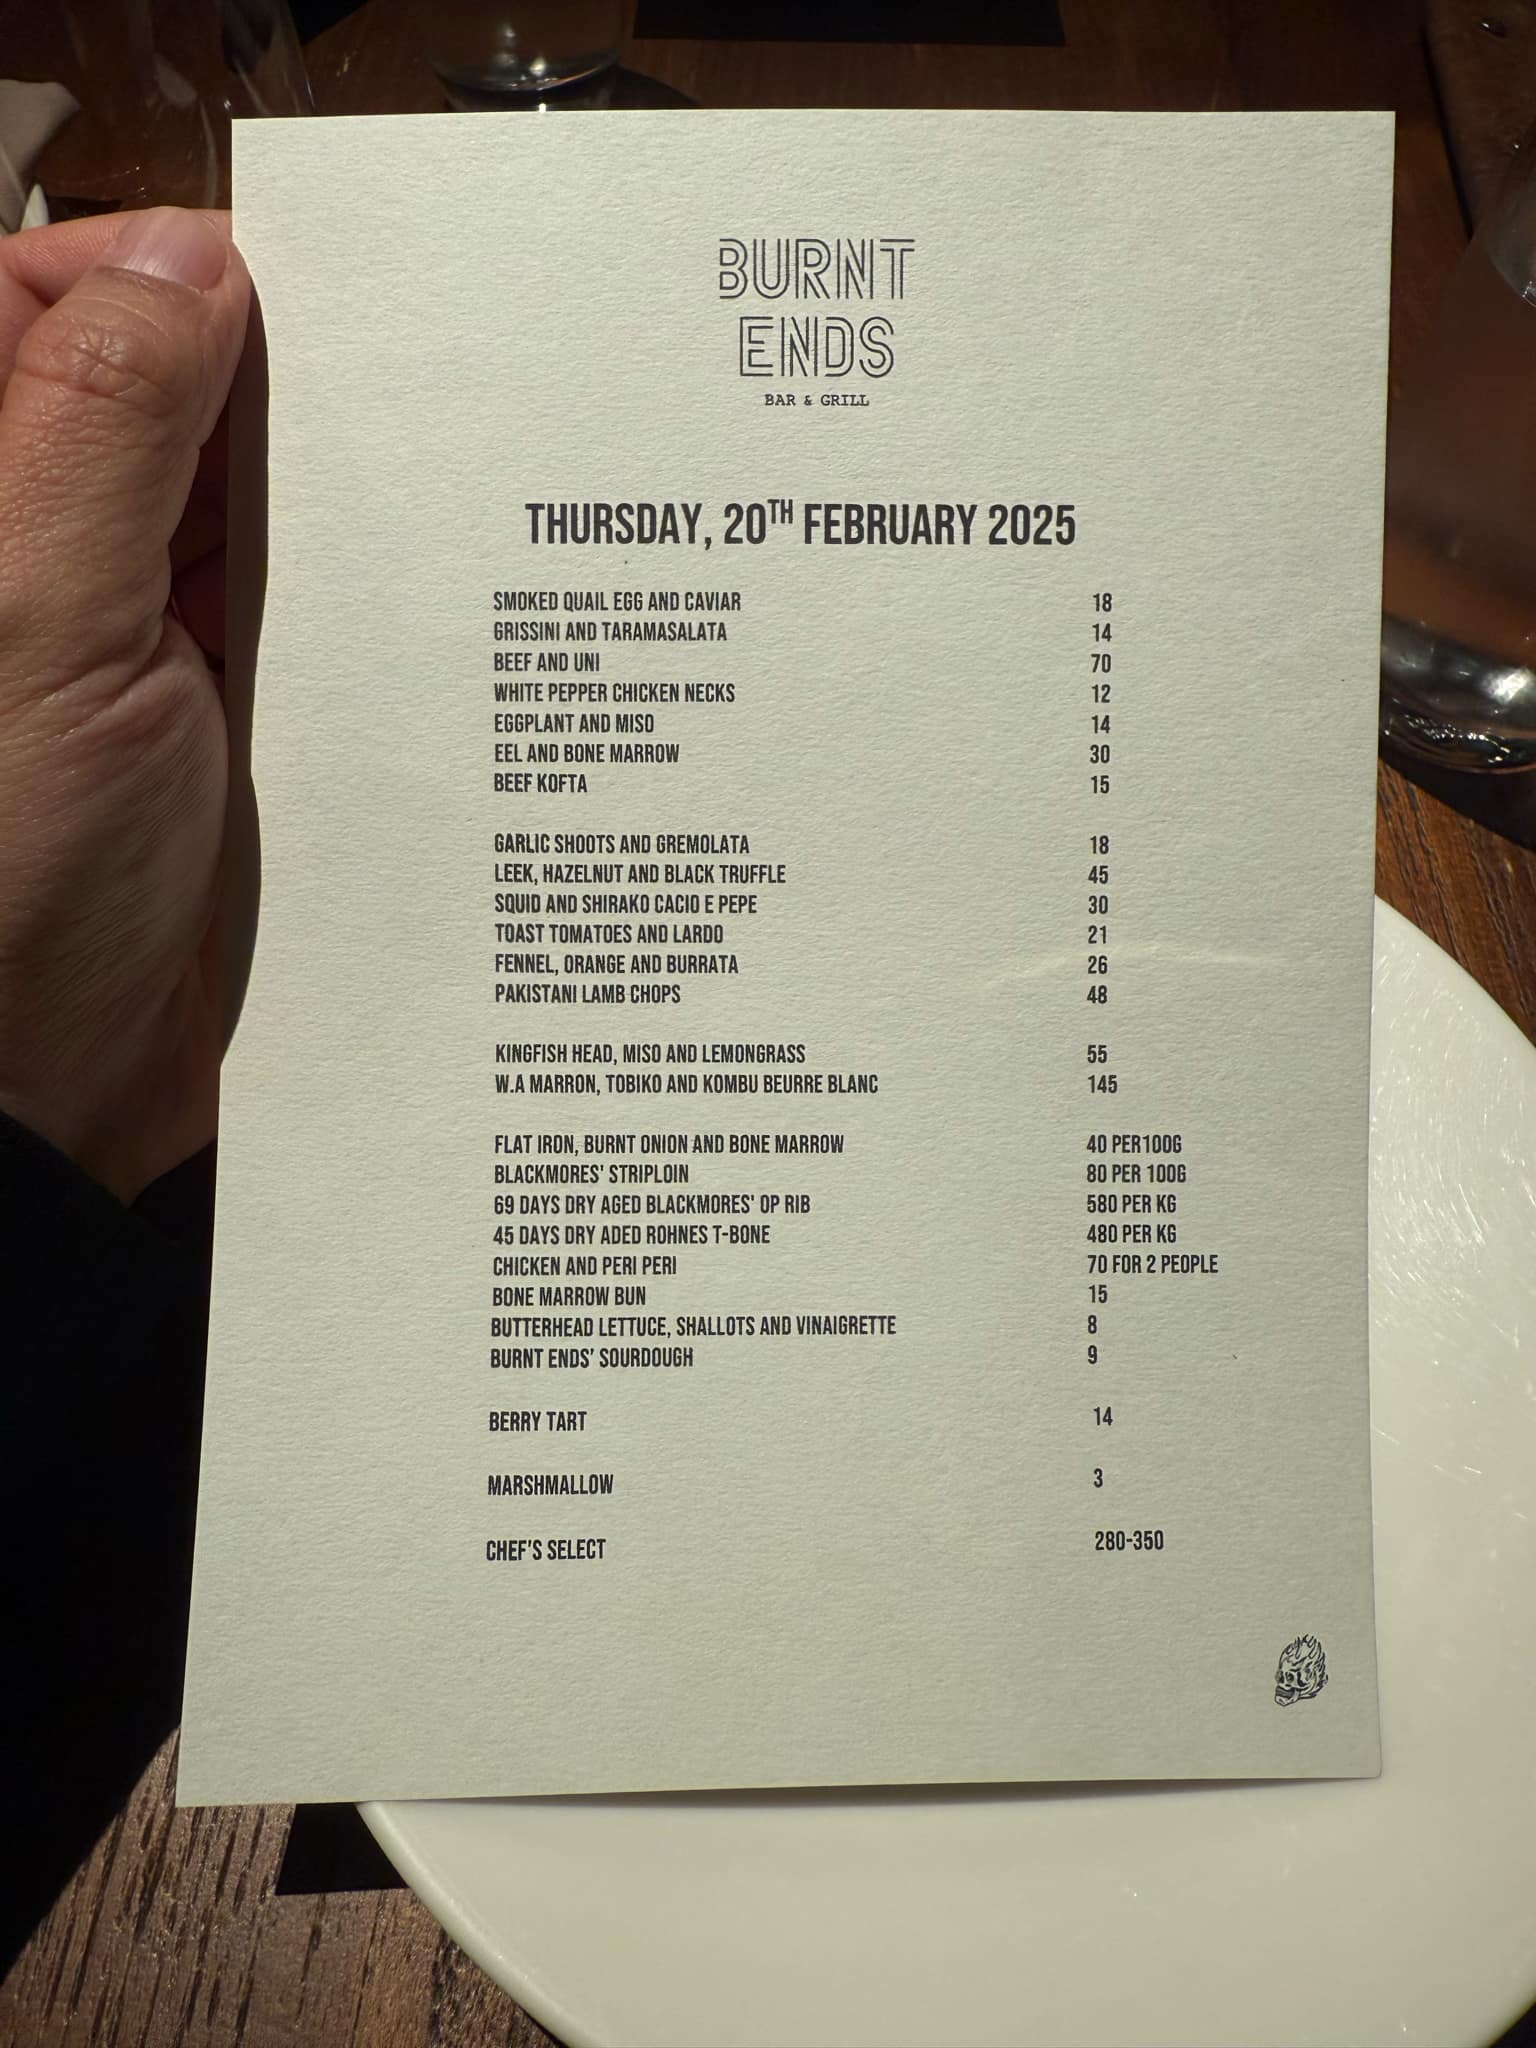 BURNT
ENDS
BAR & GRILL
THURSDAY, 20TH FEBRUARY 2025
SMOKED QUAIL EGG AND CAVIAR 18
GRISSINI AND TARAMASALATA 14
BEEF AND UNI 70
WHITE PEPPER CHICKEN NECKS 12
EGGPLANT AND MISO 14
EEL AND BONE MARROW 30
BEEF KOFTA 15
GARLIC SHOOTS AND GREMOLATA 18
LEEK, HAZELNUT AND BLACK TRUFFLE 45
SQUID AND SHIRAKO CACIO E PEPE 30
TOAST TOMATOES AND LARDO 21
FENNEL, ORANGE AND BURRATA 26
PAKISTANI LAMB CHOPS 48
KINGFISH HEAD, MISO AND LEMONGRASS 55
W.A MARRON, TOBIKO AND KOMBU BEURRE BLANC 145
FLAT IRON, BURNT ONION AND BONE MARROW 40 PER100G
BLACKMORES' STRIPLOIN 80 PER 100G
69 DAYS DRY AGED BLACKMORES' OP RIB 580 PER KG
45 DAYS DRY ADED ROHNES T-BONE 480 PER KG
CHICKEN AND PERI PERI 70 FOR 2 PEOPLE
BONE MARROW BUN 15
BUTTERHEAD LETTUCE, SHALLOTS AND VINAIGRETTE 8
BURNT ENDS’ SOURDOUGH 9
BERRY TART 14
MARSHMALLOW 3
CHEF'S SELECT 280-350